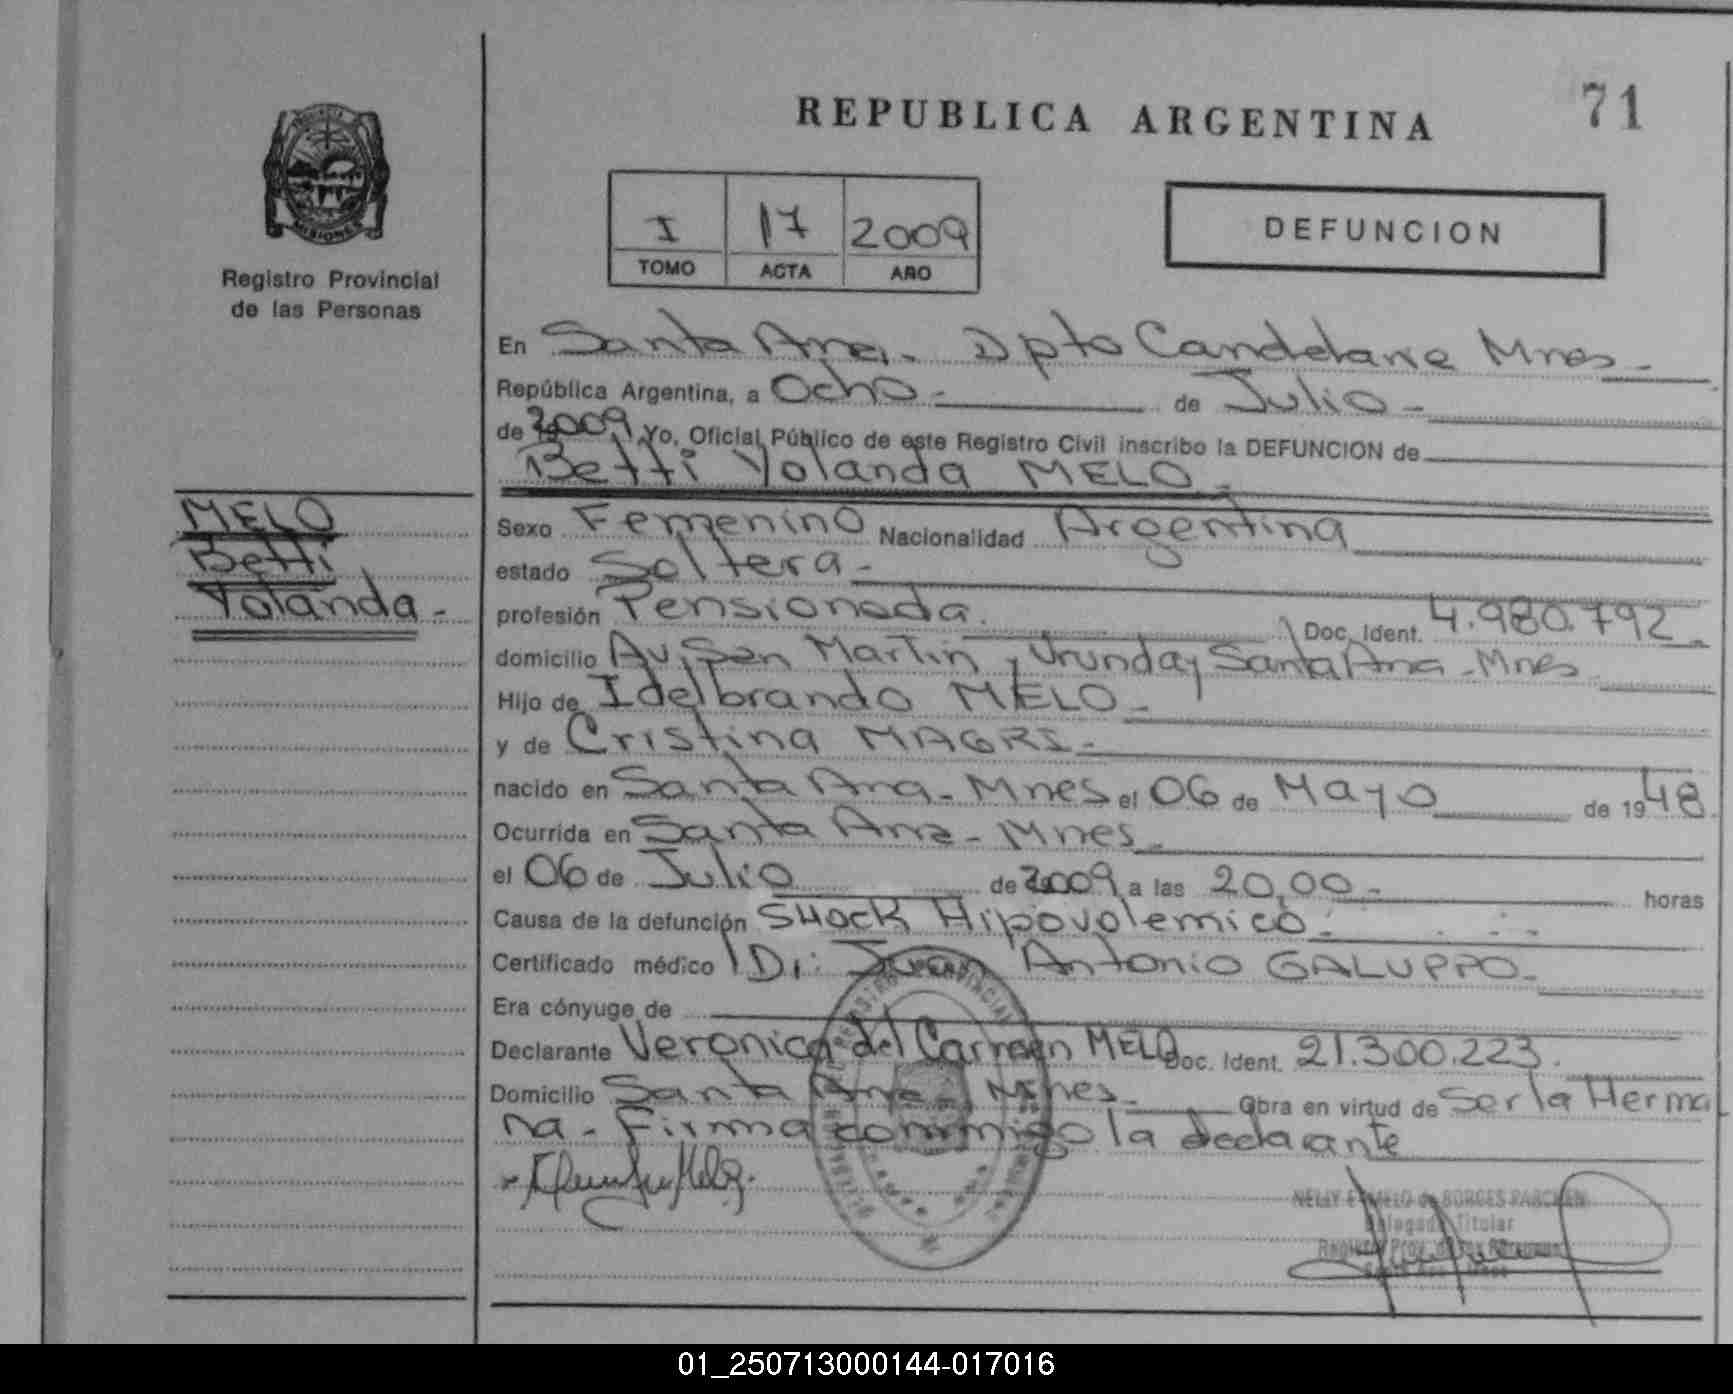 REPUBLICA ARGENTINA
71
PROVINCIA
MISIONES
Registro Provincial
de las Personas
I 17 2009
TOMO ACTA AÑO
DEFUNCION
En Santa Ana. Dpto Candelaria Mnes -
República Argentina, a Ocho - de Julio -
de 2009, Yo, Oficial Público de este Registro Civil inscribo la DEFUNCION de
Betti Yolanda MELO -
MELO
Betti
Yolanda -
Sexo Femenino Nacionalidad Argentina
estado Soltera -
profesión Pensionada. Doc. Ident. 4.980.792 -
domicilio Av. San Martin y Urunday Santa Ana - Mnes
Hijo de Idelbrando MELO -
y de Cristina MAGRI -
nacido en Santa Ana - Mnes el 06 de Mayo de 1948
Ocurrida en Santa Ana - Mnes -
el 06 de Julio de 2009 a las 20,00 - horas
Causa de la defunción Shock Hipovolemico.
Certificado médico Dr: Juan Antonio GALUPPO -
Era cónyuge de
Declarante Veronica del Carmen MELO Doc. Ident. 21.300.223.
Domicilio Santa Ana - Mnes - Obra en virtud de Ser la Herma
na - Firma conmigo la declarante
NELLY E. MELO de BORGES
Delegada Titular
01_250713000144-017016